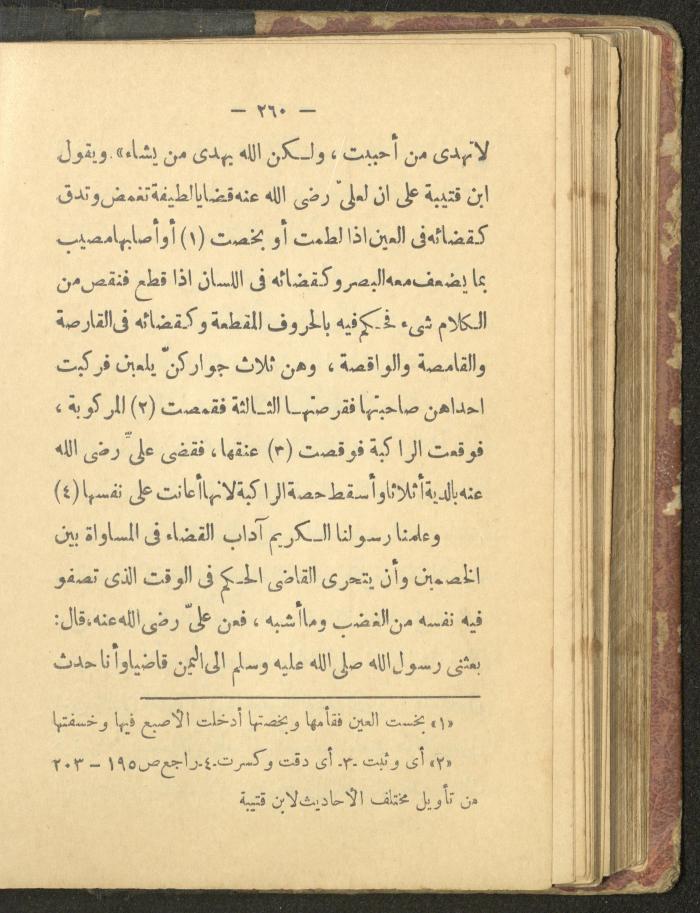 — ٢٦٠ —
لا تهدى من أحببت ، ولـكن الله يهدى من يشاء» . ويقول
ابن قتيبة على ان لعلىّ رضى الله عنه قضايا لطيفة تغمض وتدق
كقضائه فى العين اذا لطمت أو بخصت (١) أو أصابها مصيب
بما يضعف معه البصر وكقضائه فى اللسان اذا قطع فنقص من
الـكلام شىء فحـكم فيه بالحروف المقطعة وكقضائه فى القارصة
والقامصة والواقصة ، وهن ثلاث جوار كنّ يلعبن فركبت
احداهن صاحبتها فقرصتهـا الثـالثة فقمصت (٢) المركوبة ،
فوقعت الراكبة فوقصت (٣) عنقها ، فقضى علىّ رضى الله
عنه بالدية أثلاثا وأسقط حصة الراكبة لانها أعانت على نفسها (٤)
وعلمنا رسولنا الـكريم آداب القضاء فى المساواة بين
الخصمين وأن يتحرى القاضى الحـكم فى الوقت الذى تصفو
فيه نفسه من الغضب وما أشبه ، فعن علىّ رضى الله عنه، قال:
بعثنى رسول الله صلى الله عليه وسلم الى اليمن قاضيا وأنا حدث
«١» بخست العين فقأمها وبخصتها أدخلت الأصبع فيها وخسفتها
«٢» أى وثبت .٣. أى دقت وكسرت .٤. راجع ص ١٩٥ — ٢٠٣
من تأويل مختلف الأحاديث لابن قتيبة